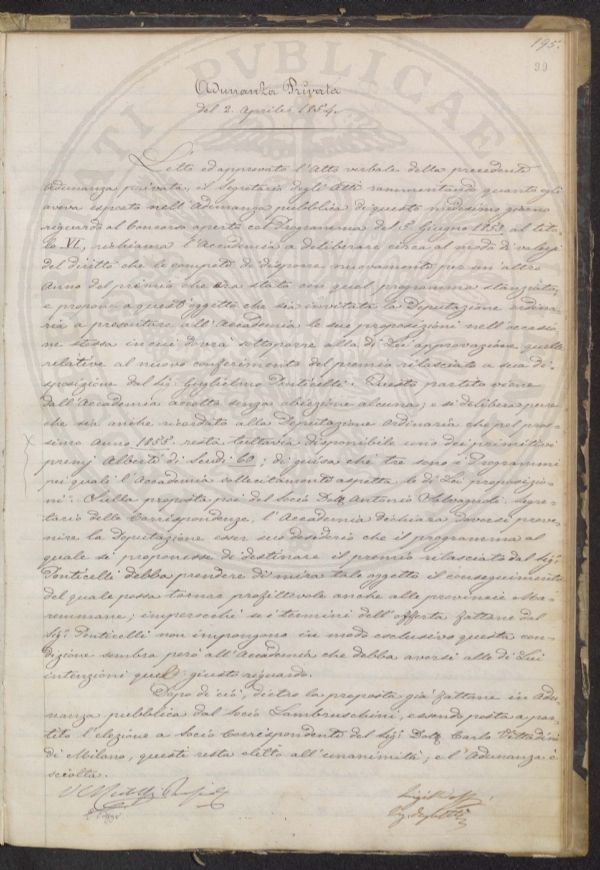 195.
99
Adunanza Privata
del 2. Aprile 1854.
Letto ed approvato l'Atto verbale della precedente
Adunanza privata, il Segretario degli Atti rammentando quanto egli
aveva esposto nell'Adunanza pubblica di questo medesimo giorno
riguardo al Concorso aperto col Programma del 5 Giugno 1853, al tito-
lo VI, richiama l'Accademia a deliberare circa al modo di valersi
del diritto che le compete di disporre nuovamente per un altro
Anno del premio che era stato con quel programma stanziato;
e propone a quest'oggetto che sia invitata la Deputazione ordina-
ria a presentare all'Accademia le sue proposizioni nell'occasio-
ne stessa in cui dovrà sottoporre alla di Lei approvazione quelle
relative al nuovo conferimento del premio rilasciato a sua di-
sposizione dal Sig. Guglielmo Ponticelli. Questo partito viene
dall'Accademia accolto senza obiezione alcuna; e si delibera pure
che sia anche ricordato alla Deputazione Ordinaria che pel pros-
simo Anno 1855 resta tuttavia disponibile uno dei primitivi
premj Alberti di Scudi 60; di guisa che tre sono i Programmi
pei quali l'Accademia sollecitamente aspetta le di Lei proposizio-
ni. Sulla proposta poi del Socio Dott. Antonio Salvagnoli, Segre-
tario delle Corrispondenze, l'Accademia dichiara doversi preve-
nire la Deputazione esser suo desiderio che il programma al
quale si proponesse di destinare il premio rilasciato dal Sig.
Ponticelli debba prendere di mira tale oggetto il conseguimento
del quale possa tornar profittevole anche alle provincie Ma-
remmane; imperocchè se i termini dell'offerta fattane dal
Sig. Ponticelli non impongono in modo esclusivo questa con-
dizione sembra però all'Accademia che debba aversi alle di Lui
intenzioni quel giusto riguardo.
Dopo di ciò, dietro la proposta già fattane in Adu-
nanza pubblica dal Socio Lambruschini, essendo posta a par-
tito l'elezione a Socio Corrispondente del Sig. Dott. Carlo Vittadini
di Milano, questi resta eletto all'unanimità; e l'Adunanza è
sciolta.